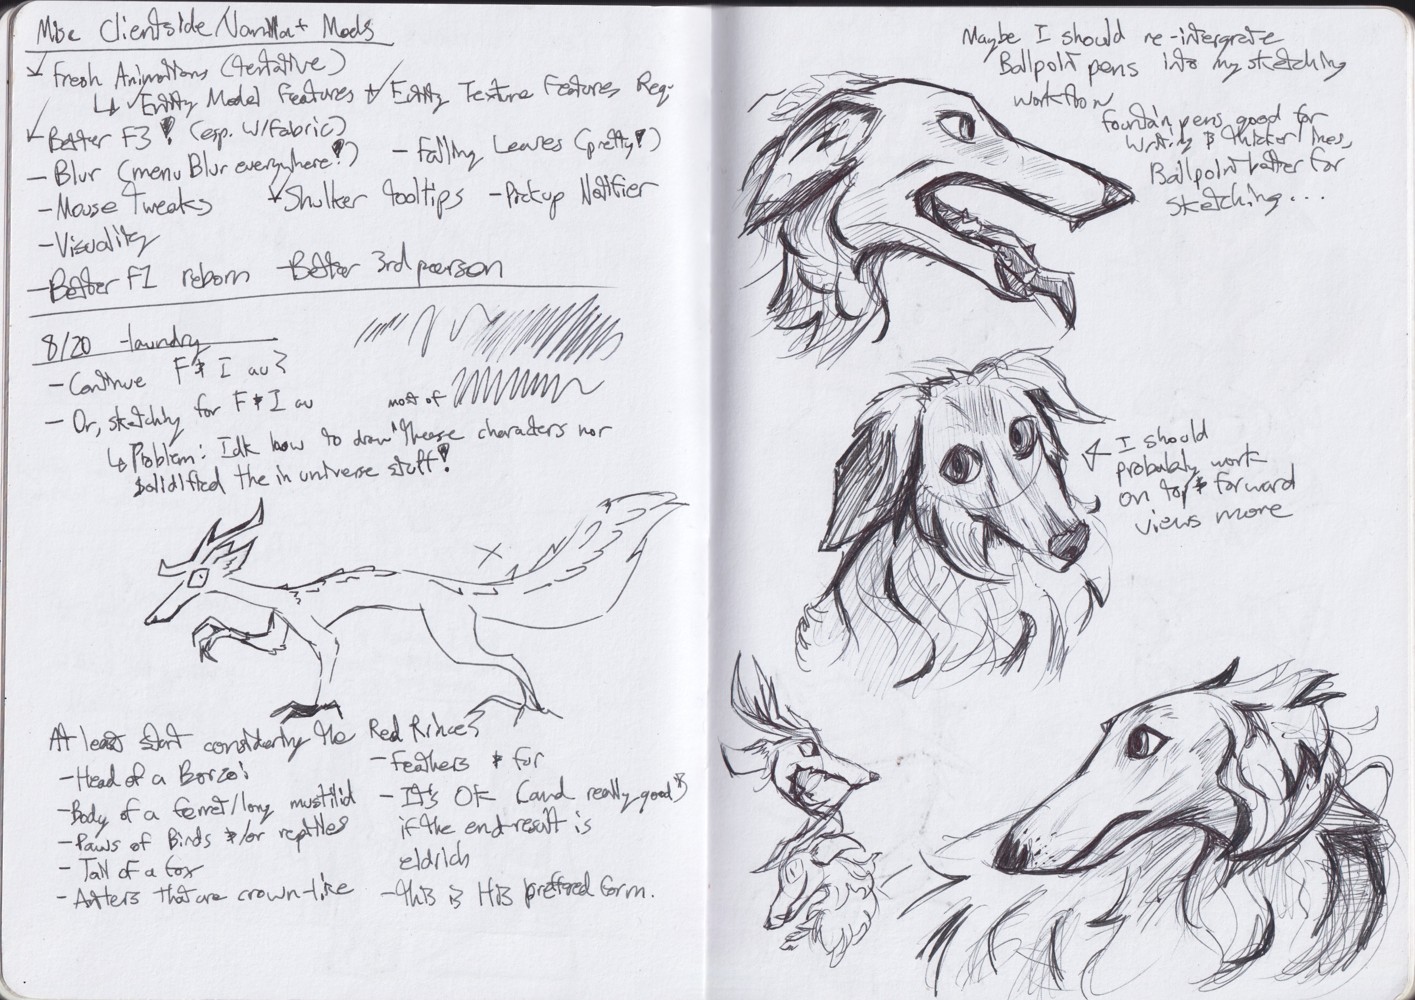 Misc Clientside/Vanilla+ Mods
Fresh Animations (tentative)
↳ Entity Model Features + Entity Texture Features Req.
Better F3! (esp. w/Fabric)
- Blur (menu Blur everywhere!) - Falling Leaves (pretty!)
- Mouse Tweaks Shulker tooltips - Pickup Notifier
- Visuality
- Better F1 reborn - Better 3rd person
8/20 - laundry
- Continue F & I au?
- Or, sketchy for F & I au
most of
↳ Problem: Idk how to draw ^ these characters nor
solidified the in universe stuff!
At least start considering the Red Princes
- Head of a Borzoi
- Body of a ferret/long mustilid
- Paws of Birds &/or reptiles
- Tail of a fox
- Antlers that are crown-like
- Feathers & fur
- It's OK (and really good)
if the end result is
eldrich
- this is His preffered form.
Maybe I should re-intergrate
Ballpoint pens into my sketching
workflow
fountain pens good for
writing & thicker lines,
Ballpoint better for
sketching...
I should
probably work
on top & forward
views more